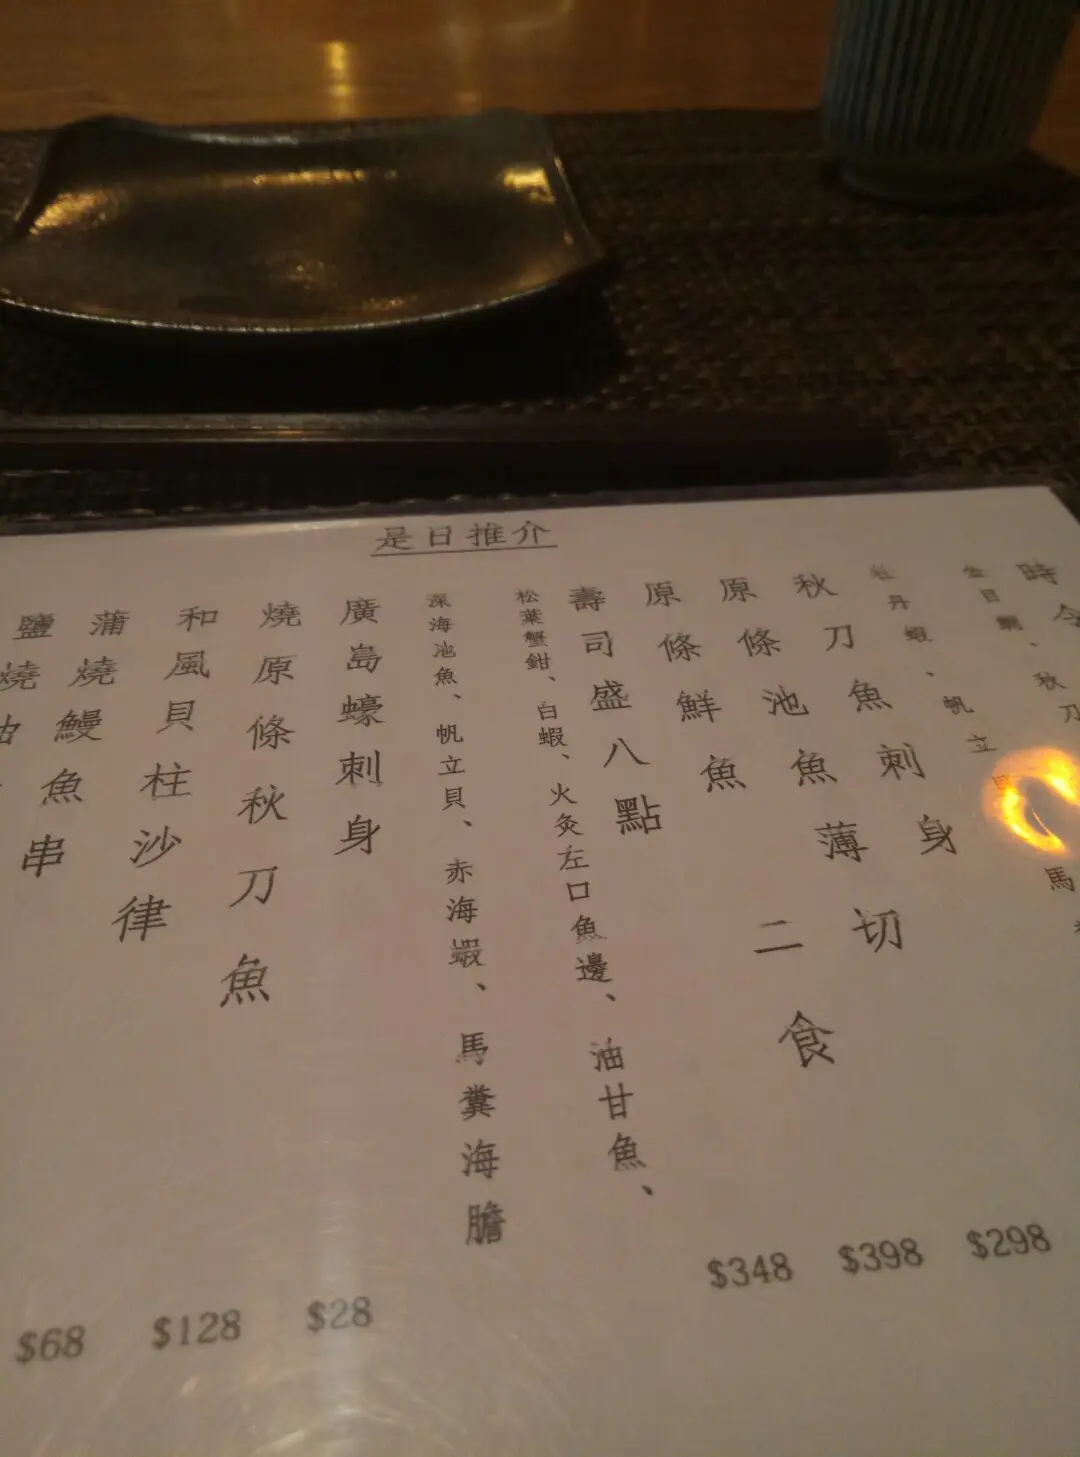 是日推介
時令
金目鯛、秋刀
馬
牡丹蝦、帆立貝
秋刀魚刺身
原條池魚薄切
原條鮮魚二食
壽司盛八點
松葉蟹鉗、白蝦、火灸左口魚邊、油甘魚、
深海池魚、帆立貝、赤海蝦、馬糞海膽
廣島蠔刺身
燒原條秋刀魚
和風貝柱沙律
蒲燒鰻魚串
鹽燒油
$298
$398
$348
$28
$128
$68